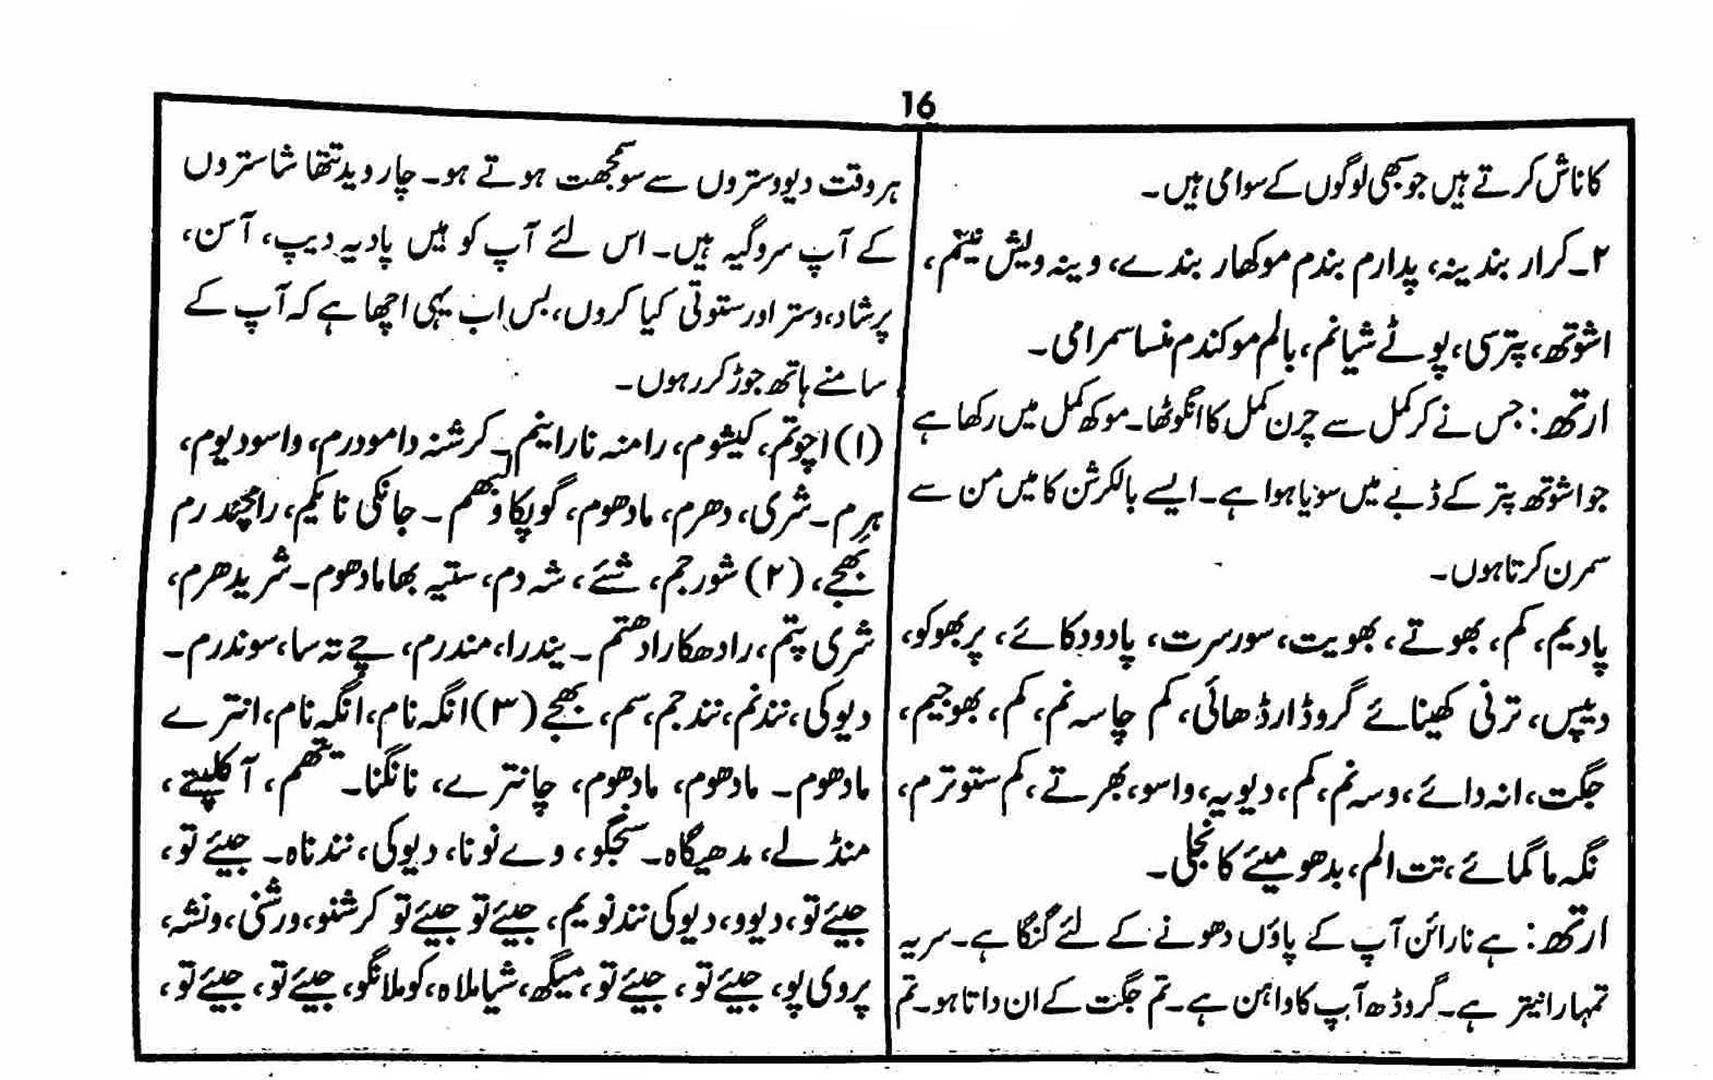 16
کا ناش کرتے ہیں جو سبھی لوگوں کے سوامی ہیں۔
۲۔ کرار بندینہ، پدارم بندم موکھار بندے، وینہ ویش نیتم،
اشوتھ، پترسی، پوٹے شیانم، بالم موکندم منسا سمرامی۔
ارتھ: جس نے کر کمل سے چرن کمل کا انگوٹھا۔ موکھ کمل میں رکھا ہے
جو اشوتھ پتر کے ڈبے میں سویا ہوا ہے۔ ایسے بالکرشن کا میں من سے
سمرن کرتا ہوں۔
پادیم، کم، بھوتے، بھویت، سورسرت، پادودکائے، پربھوکو،
دیپس، ترنی کھینائے گروڈارڈھائی، کم چاسہ نم، کم، بھوجیم،
جگت، انہ دائے، وسہ نم، کم، دیویہ، واسو، بھرتے، کم ستوترم،
نگہ ماگمائے، تت الم، بدھو میئے کانجلی۔
ارتھ: ہے نارائن آپ کے پاؤں دھونے کے لئے گنگا ہے۔ سریہ
تمہارا نیتر ہے۔ گروڈھ آپ کا واہن ہے۔ تم جگت کے ان داتا ہو۔ تم
ہر وقت دیو وستروں سے سوسمجھت ہوتے ہو۔ چار وید تتھا شاستروں
کے آپ سروگیہ ہیں۔ اس لئے آپ کو میں پادیہ دیپ، آسن،
پرشاد، وستر اور ستوتی کیا کروں، بس اب یہی اچھا ہے کہ آپ کے
سامنے ہاتھ جوڑ کر رہوں۔
(۱) اچوتم، کیشوم، رامنہ ناراینم۔ کرشنہ دامودرم، واسودیوم،
ہرم۔ شری، دھرم، مادھوم، گوپکا ولبھم۔ جانکی نایکم، رامچندرم
بھجے، (۲) شورجم، شئے، شہ دم، ستیہ بھامادھوم۔ شریدھرم،
شری پتم، رادھکا رادھتم۔ یندرا، مندرم، چے تہ سا، سوندرم۔
دیوکی، نندنم، نندجم، سم، بھجے (۳) انگہ نام، انگہ نام، انترے
مادھوم۔ مادھوم، مادھوم، چانترے، نانگنا۔ یتھم، آکلپتے،
منڈلے، مدھیگاہ۔ سنجگو، وے نونا، دیوکی، نندناہ۔ جیئے تو،
جیئے تو، دیوو، دیوکی نندنویم، جیئے تو جیئے تو کرشنو، ورشنی، ونشہ،
پروی پو، جیئے تو، جیئے تو، میگھ، شیاملاہ، کوملانگو، جیئے تو، جیئے تو،